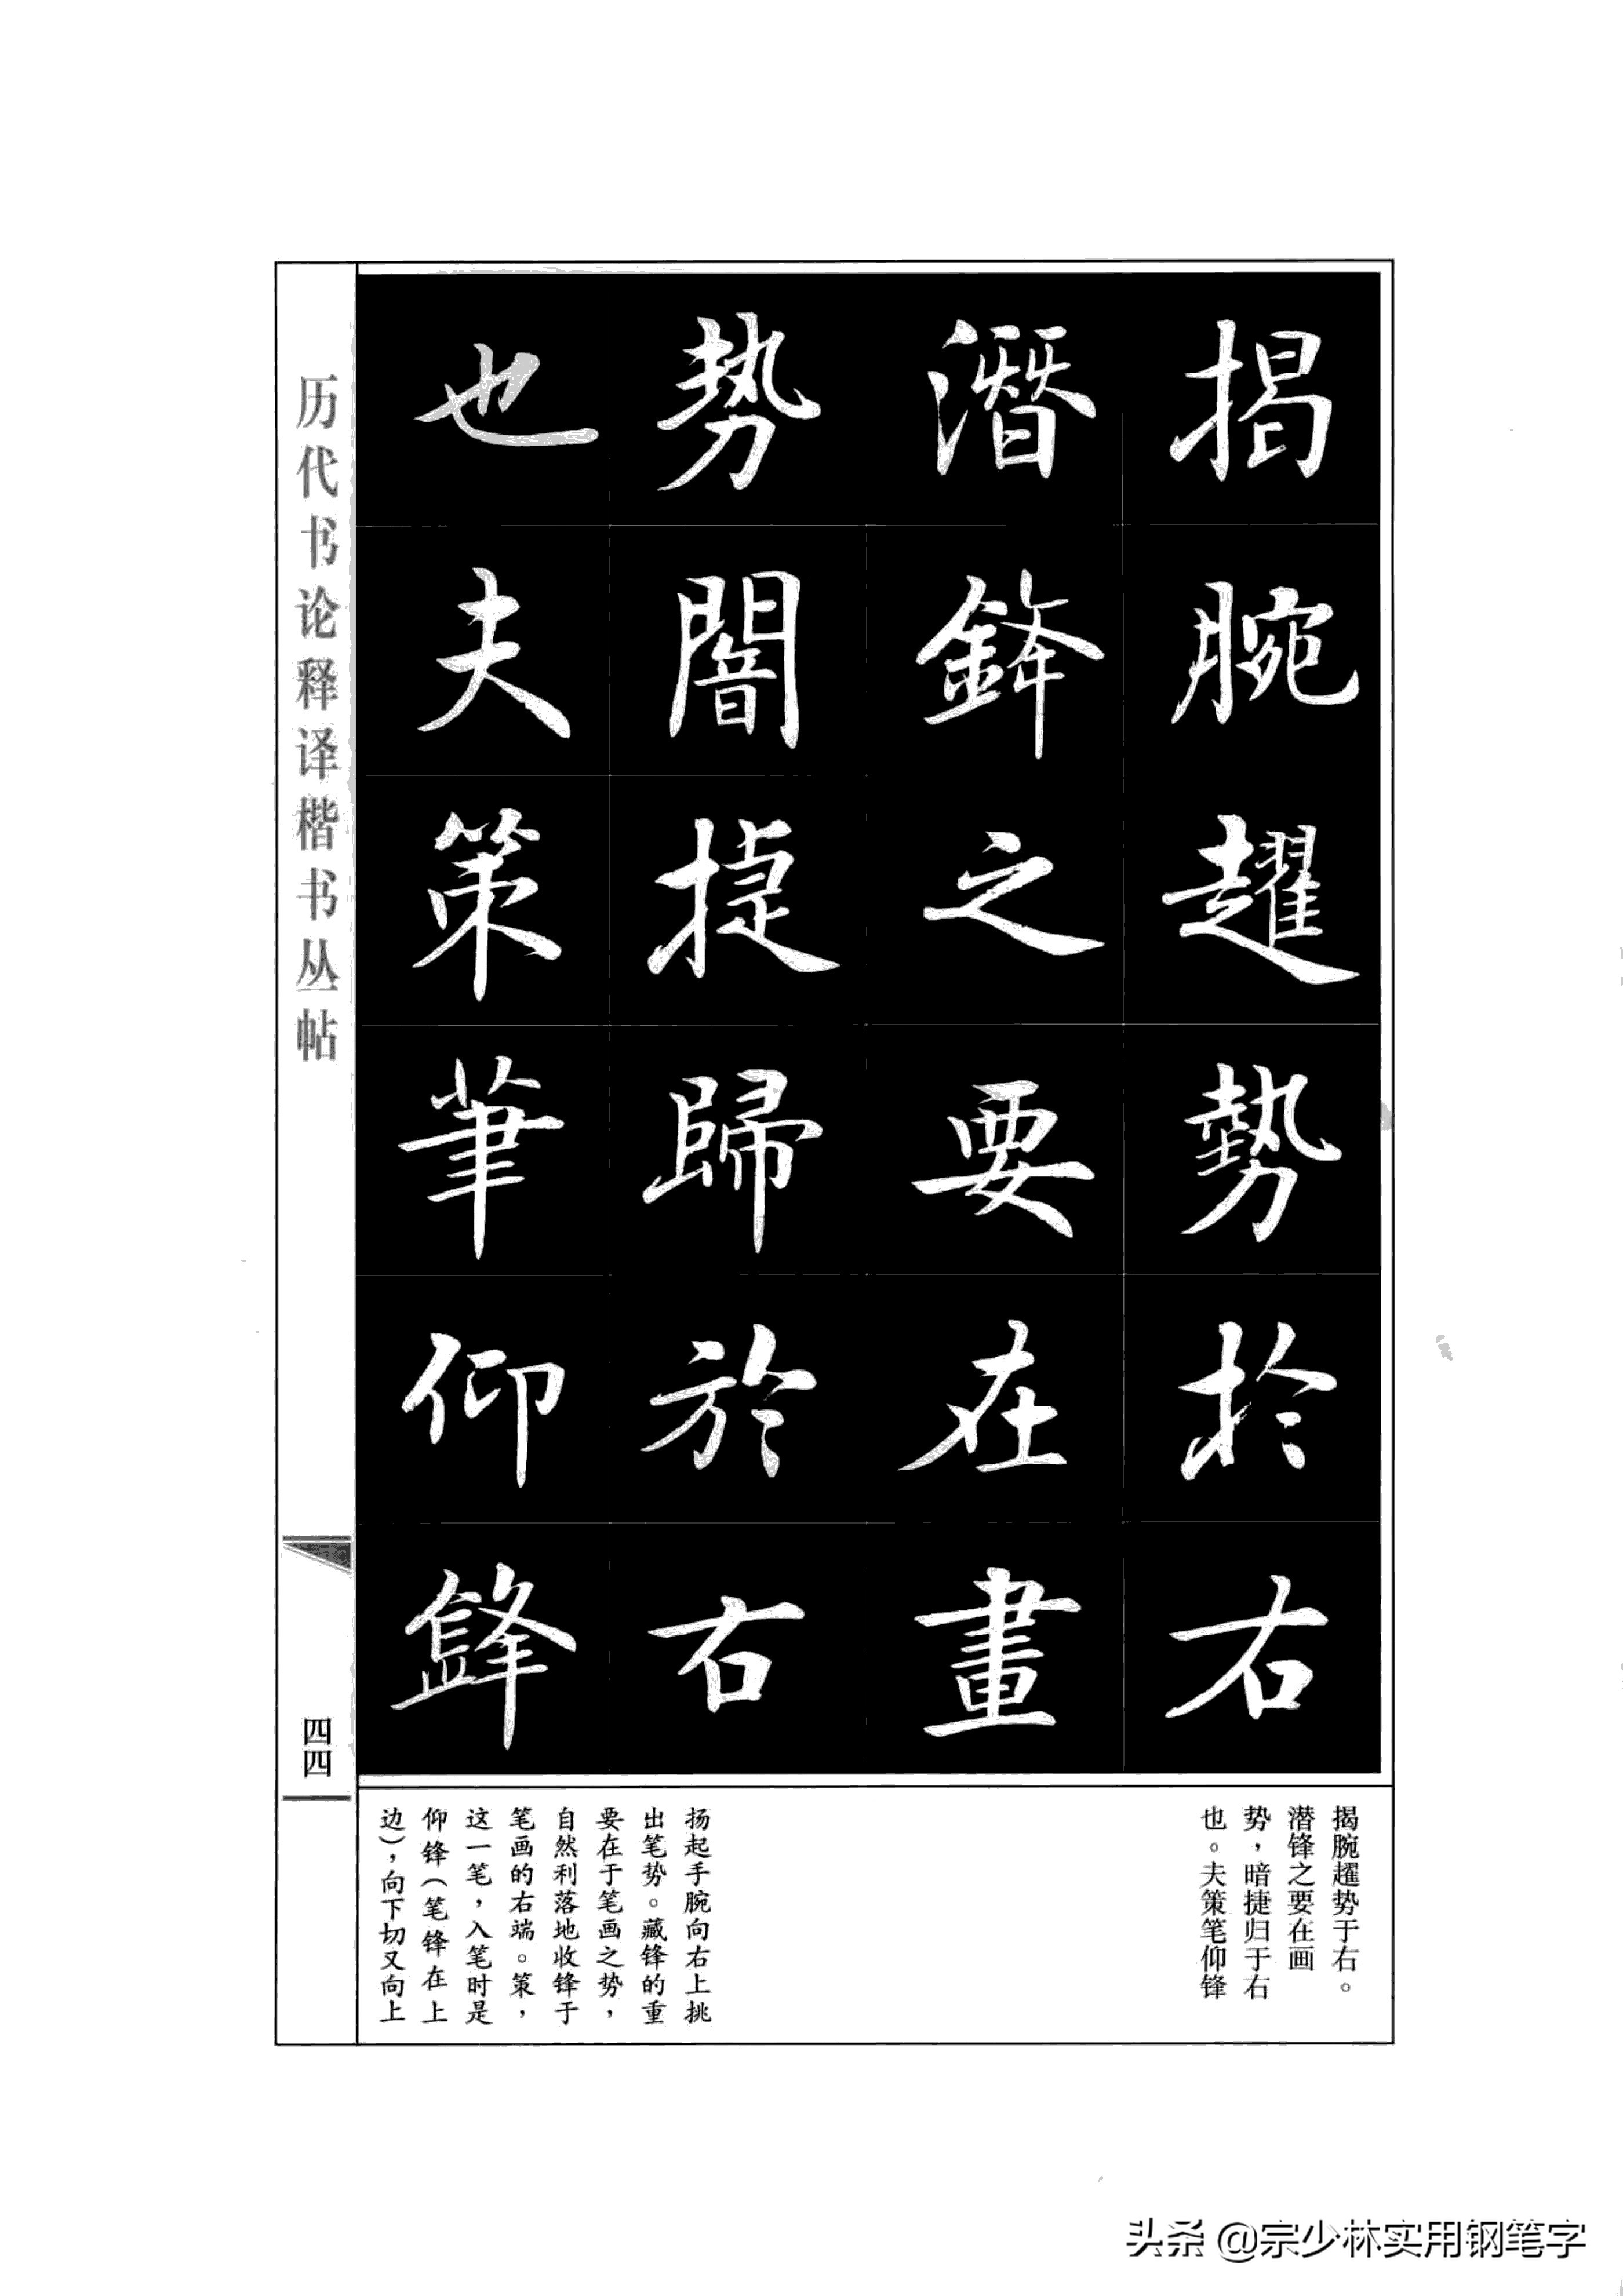 揭腕趯勢於右
潛鋒之要在畫
勢闇捷歸於右
也夫策筆仰鋒
揭腕趯势于右。
潜锋之要在画
势，暗捷归于右
也。夫策笔仰锋
扬起手腕向右上挑
出笔势。藏锋的重
要在于笔画之势，
自然利落地收锋于
笔画的右端。策，
这一笔，入笔时是
仰锋（笔锋在上
边），向下切又向上
历代书论释译楷书丛帖
四四
头条 @宗少林实用钢笔字